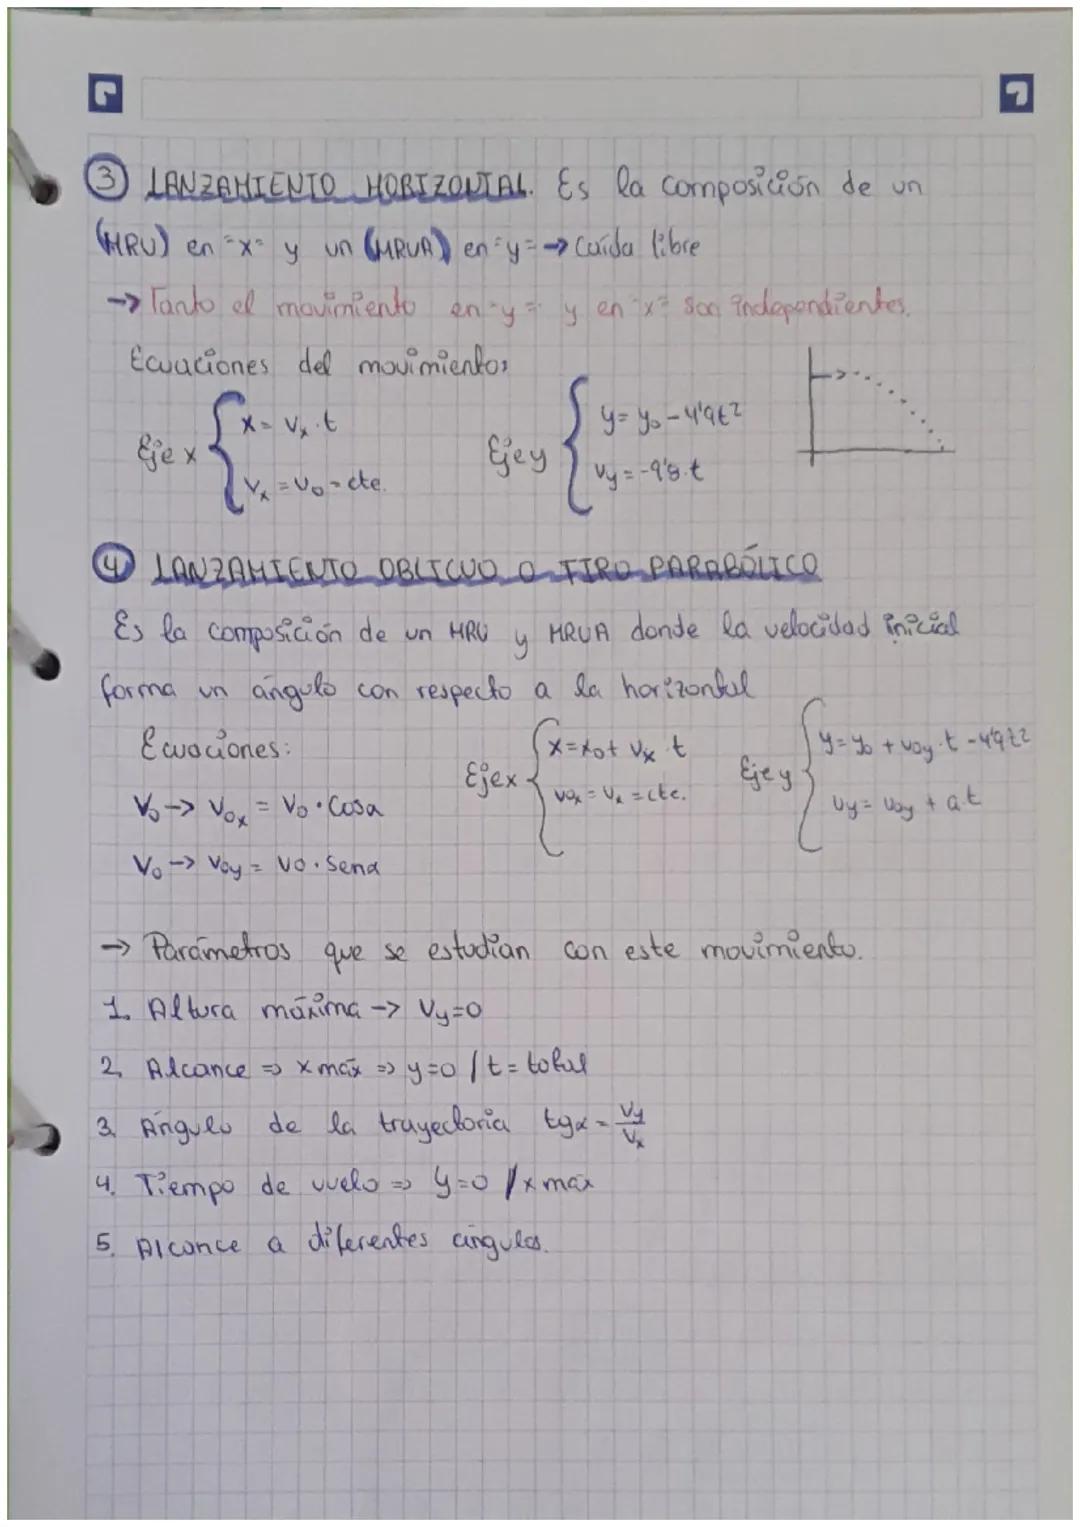 3 LANZAMIENTO HORIZONTAL. Es la composición de un
(MRU) en "x" y un (MRUA) en "y" → Caída libre
→ Tanto el movimiento en "y" y en "x" son independientes.
Ecuaciones del movimiento:
Eje x { x = Vx · t
Vx = V0 = cte.
Eje y { y = y0 - 4'9t²
Vy = -9'8 · t
4 LANZAMIENTO OBLICUO O TIRO PARABÓLICO
Es la composición de un MRU y MRUA donde la velocidad inicial
forma un ángulo con respecto a la horizontal
Ecuaciones:
Eje x { x = x0 + Vx · t
V0x = Vx = cte.
Eje y { y = y0 + V0y · t - 4'9t²
Vy = V0y + a·t
V0 → V0x = V0 · Cosα
V0 → V0y = V0 · Senα
→ Parámetros que se estudian con este movimiento.
1. Altura máxima → Vy=0
2. Alcance ⇒ x máx ⇒ y=0 / t = total
3. Ángulo de la trayectoria tgα = Vy/Vx
4. Tiempo de vuelo ⇒ y=0 / x máx
5. Alcance a diferentes ángulos.